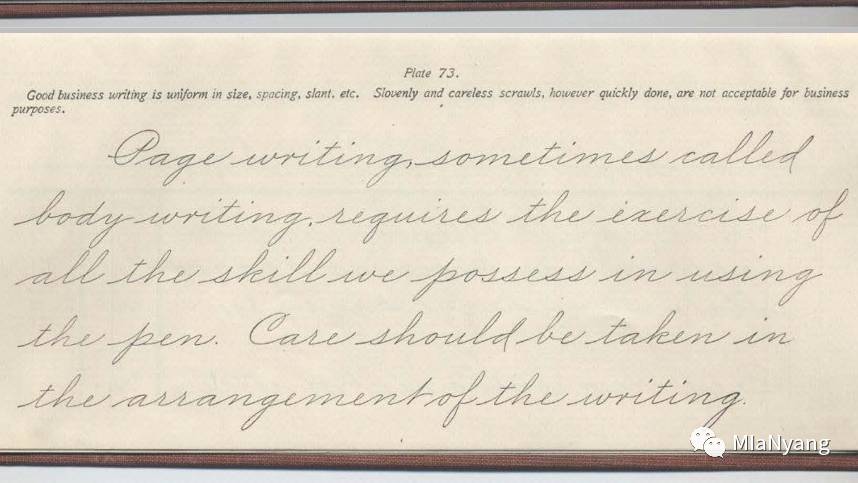 Plate 73.
Good business writing is uniform in size, spacing, slant, etc. Slovenly and careless scrawls, however quickly done, are not acceptable for business
purposes.
Page writing, sometimes called
body writing, requires the exercise of
all the skill we possess in using
the pen. Care should be taken in
the arrangement of the writing.
MlaNyang